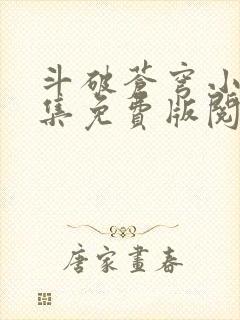 斗破苍穹小
集免費版閱
唐家畫春